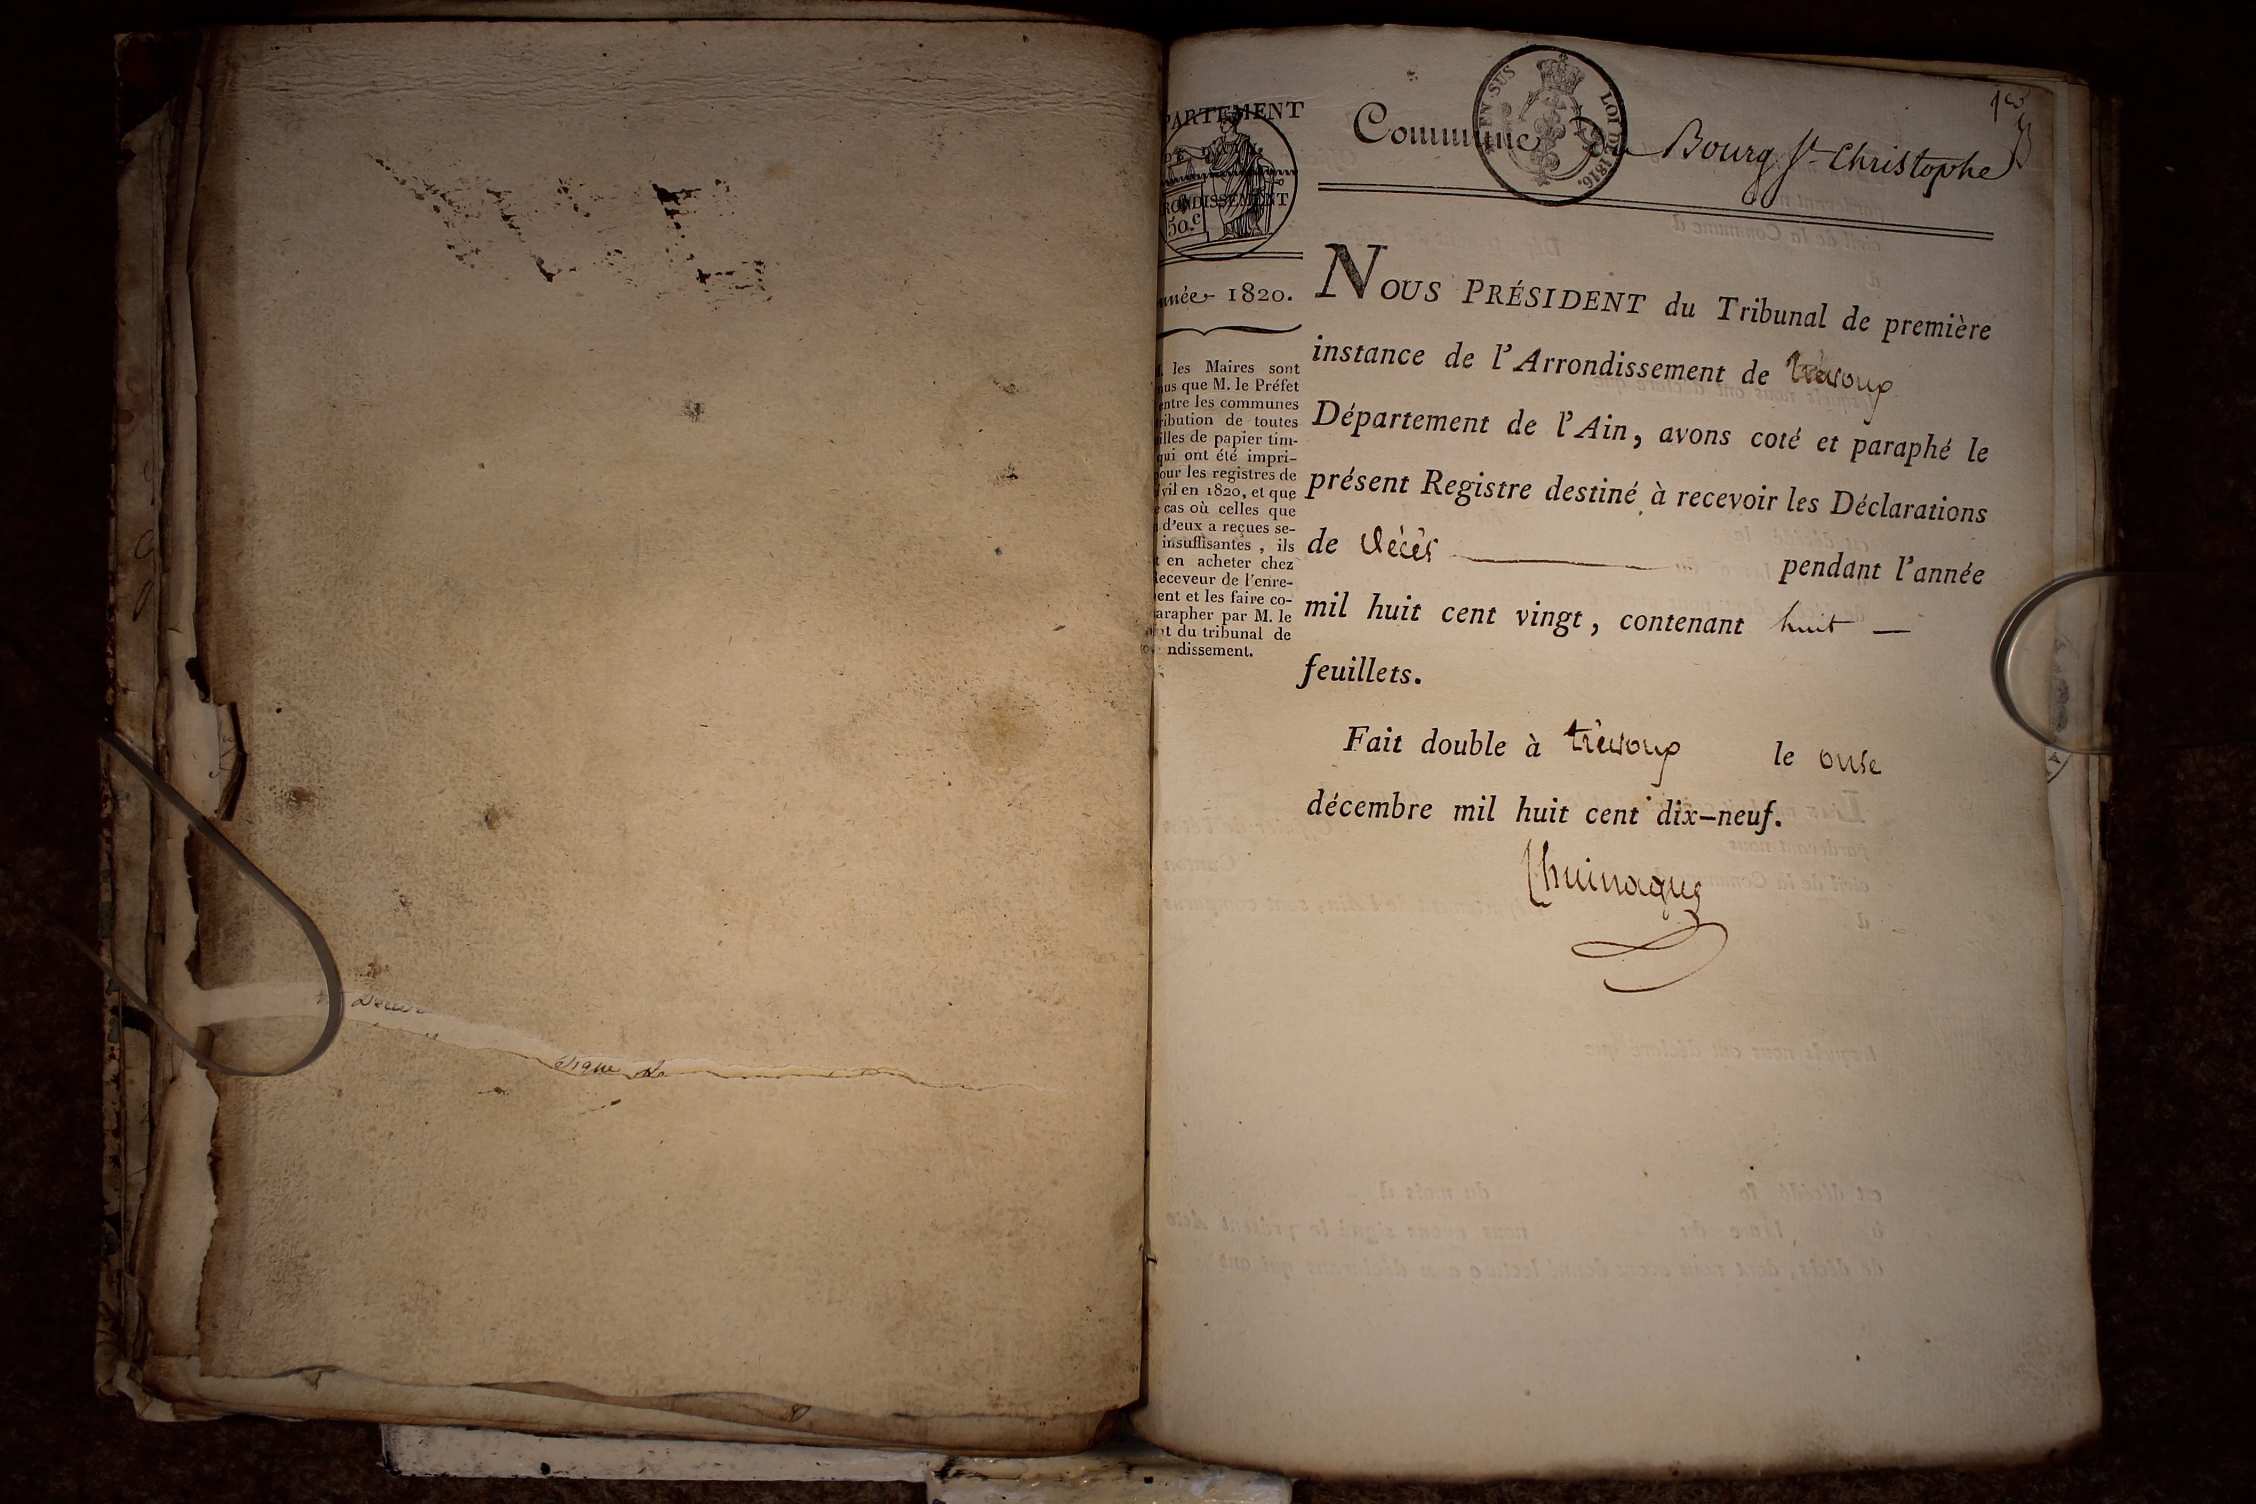 PARTEMENT
DE L'AIN.
RONDISSEMENT
50.c
EN SUS
LOI DE 1816.
1er
Commune de Bourg St Christophe
nnée 1820.
les Maires sont
us que M. le Préfet
entre les communes
ribution de toutes
illes de papier tim-
qui ont été impri-
our les registres de
vil en 1820, et que
cas où celles que
d'eux a reçues se-
insuffisantes, ils
t en acheter chez
Receveur de l'enre-
ent et les faire co-
arapher par M. le
nt du tribunal de
ndissement.
NOUS PRÉSIDENT du Tribunal de première
instance de l'Arrondissement de trévoux
Département de l'Ain, avons coté et paraphé le
présent Registre destiné à recevoir les Déclarations
de décès pendant l'année
mil huit cent vingt, contenant huit —
feuillets.
Fait double à trévoux le onse
décembre mil huit cent dix-neuf.